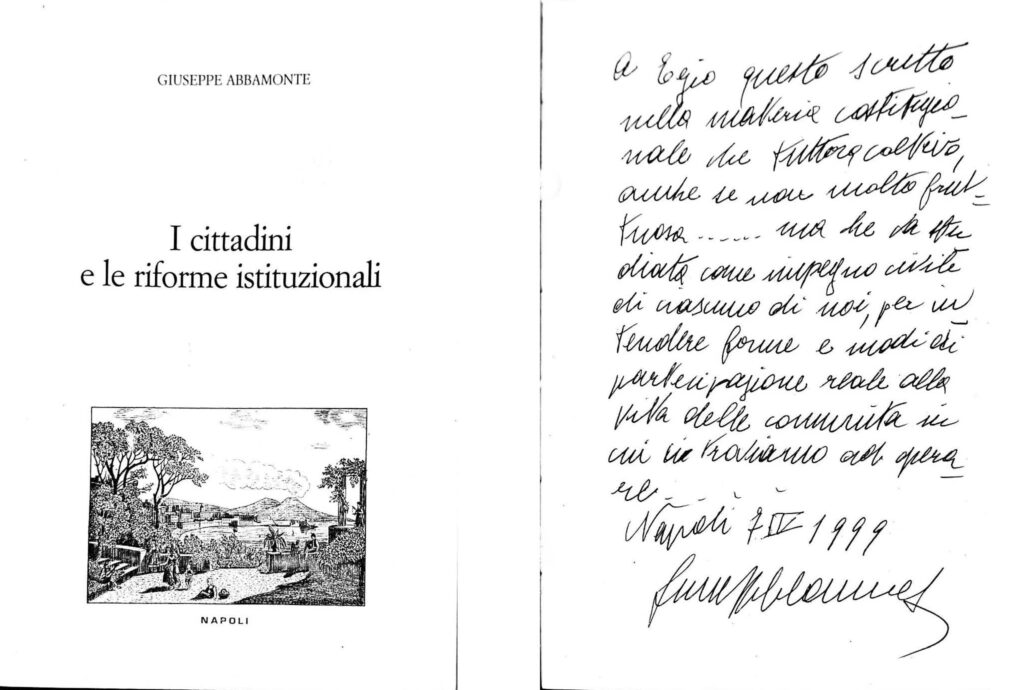 GIUSEPPE ABBAMONTE
I cittadini
e le riforme istituzionali
NAPOLI
A Egio questo scritto
nella materia costituzio_
nale che tuttora coltivo,
anche se non molto frut_
tuosa ...... ma che va stu
diata come impegno civile
di ciascuno di noi, per in
tendere forme e modi di
partecipazione reale alla
vita delle comunità in
cui ci troviamo ad opera_
re...
Napoli 7 IV 1999